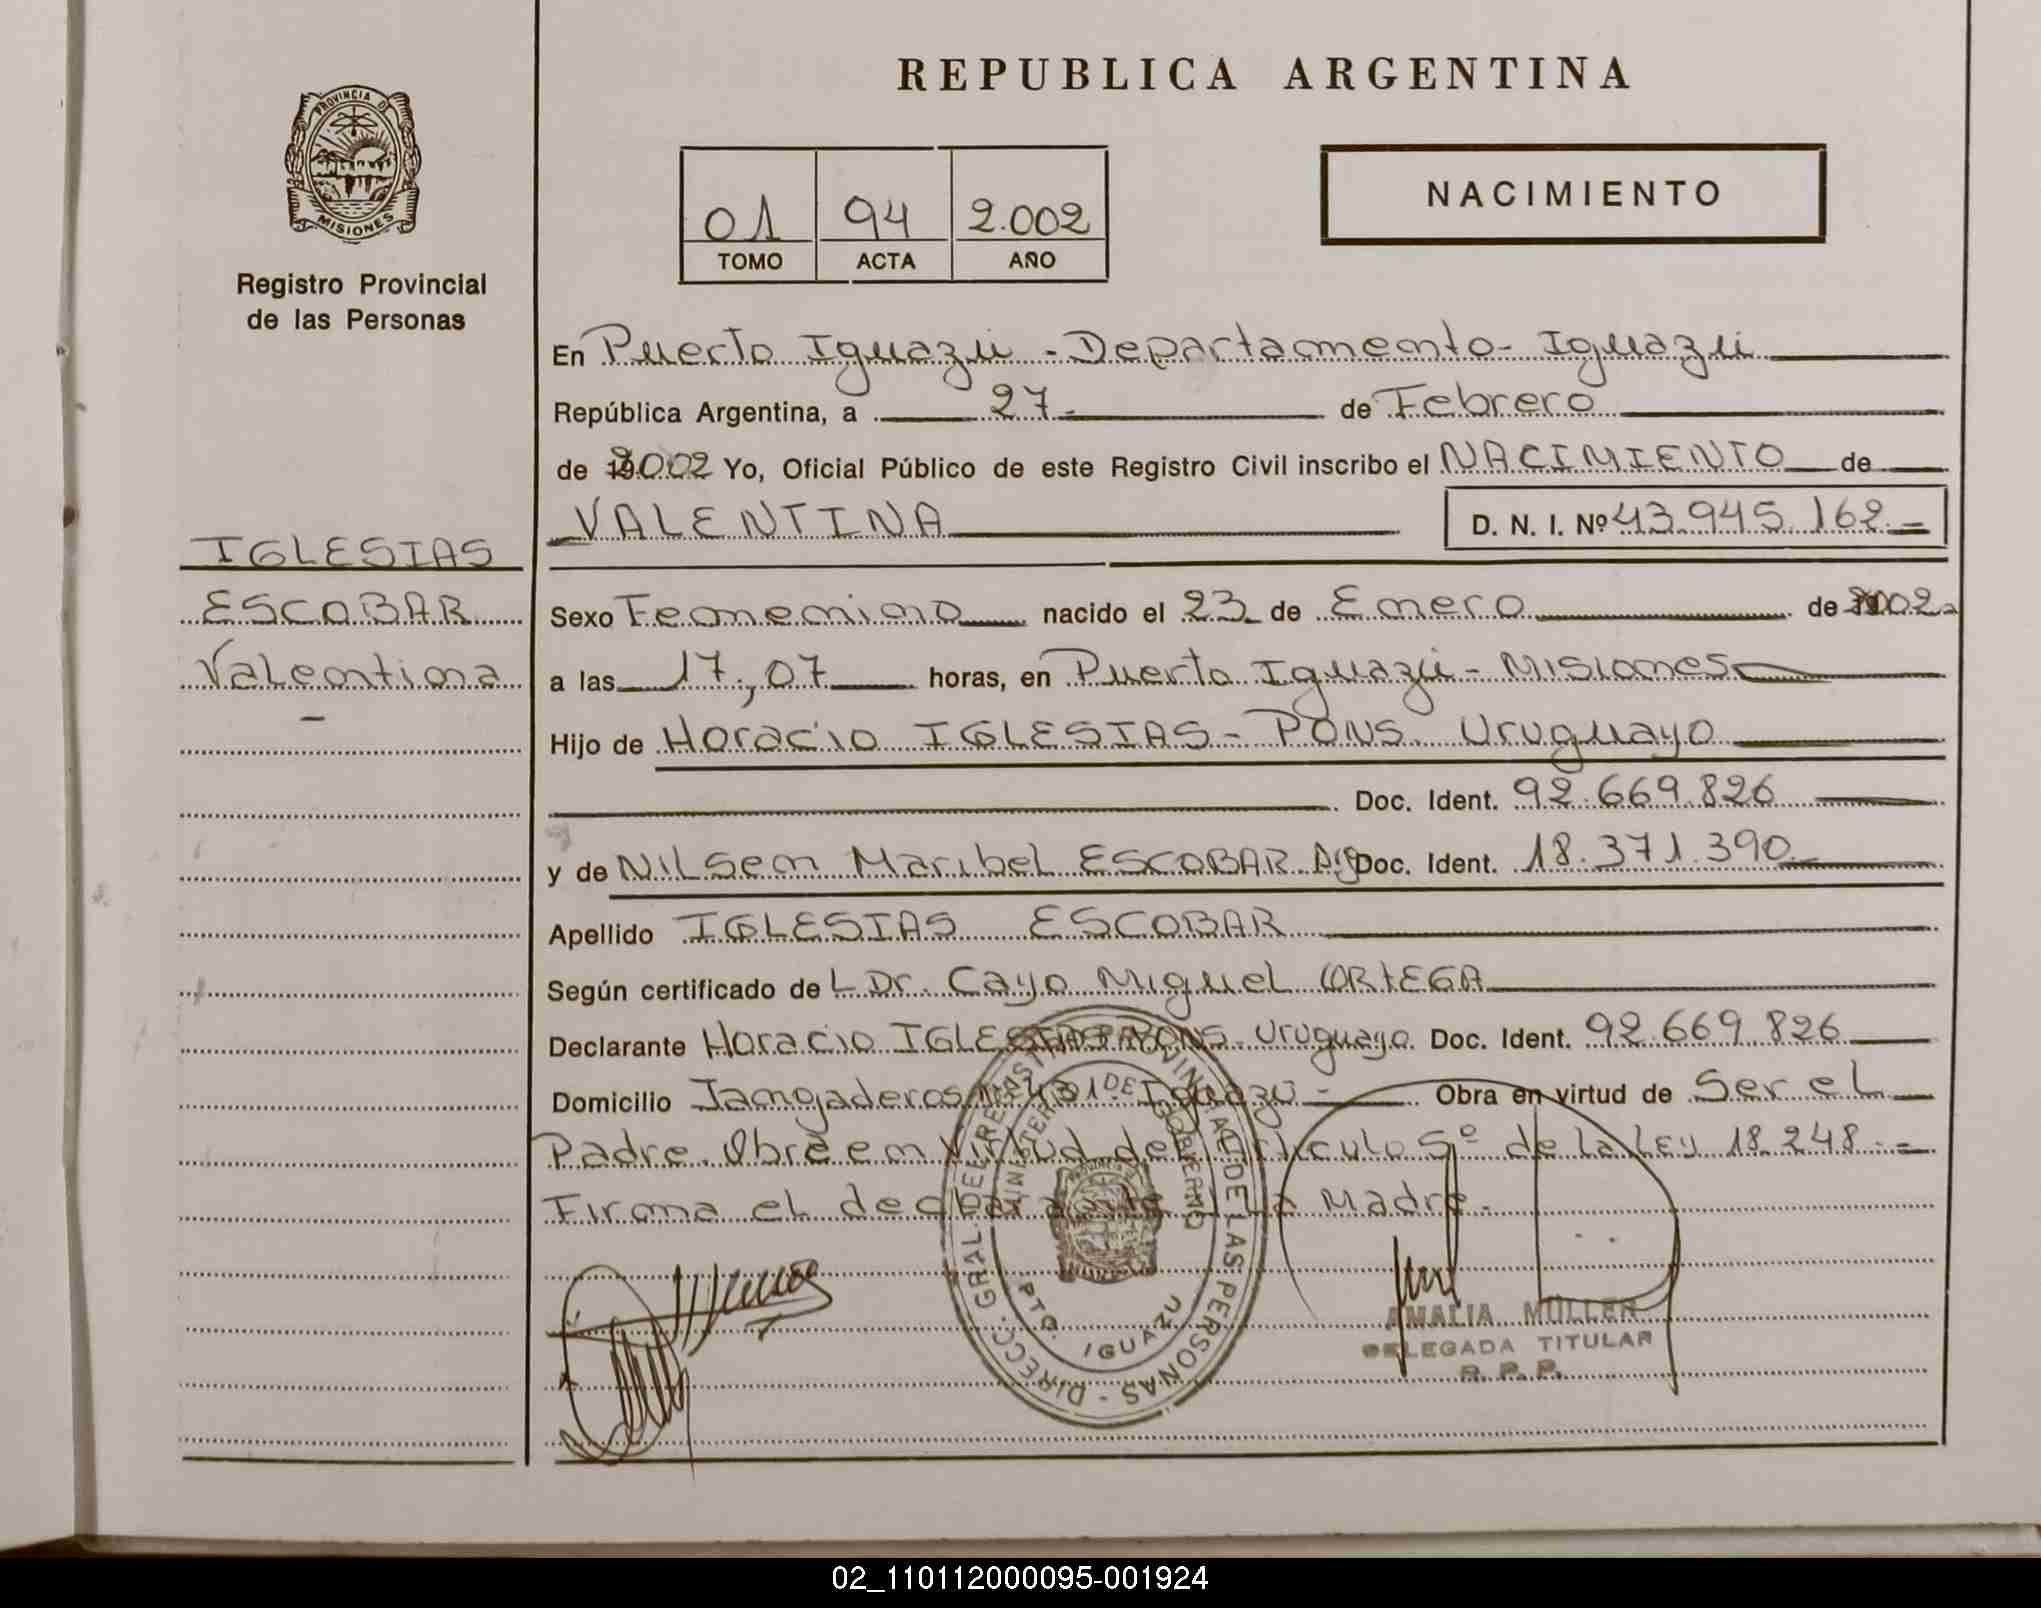 REPUBLICA ARGENTINA
PROVINCIA DE
MISIONES
Registro Provincial
de las Personas
01 94 2.002
TOMO ACTA AÑO
NACIMIENTO
IGLESIAS
ESCOBAR
Valentina
En Puerto Iguazú - Departamento - Iguazú
República Argentina, a 27 de Febrero
de 2002 Yo, Oficial Público de este Registro Civil inscribo el NACIMIENTO de
VALENTINA D. N. I. Nº 43.945.162.-
Sexo Femenino nacido el 23 de Enero de 2002
a las 17,07 horas, en Puerto Iguazú - Misiones
Hijo de Horacio IGLESIAS - PONS. Uruguayo
Doc. Ident. 92.669.826
y de Nilsen Maribel ESCOBAR Arg Doc. Ident. 18.371.390
Apellido IGLESIAS ESCOBAR
Según certificado de L Dr. Cayo Miguel ORTEGA
Declarante Horacio IGLESIAS PONS. Uruguayo Doc. Ident. 92.669.826
Domicilio 431 Iguazú - Obra en virtud de Ser el
Padre. Obre en Virtud del Artículo 5º de la Ley 18.248.-
Firma el declarante y la Madre.-
DIRECC. GRAL. DEL REGISTRO PROVINCIAL DE LAS PERSONAS
MINISTERIO DE GOBIERNO
PTO. IGUAZU
AMALIA MULLER
DELEGADA TITULAR
R. P. P.
02_110112000095-001924